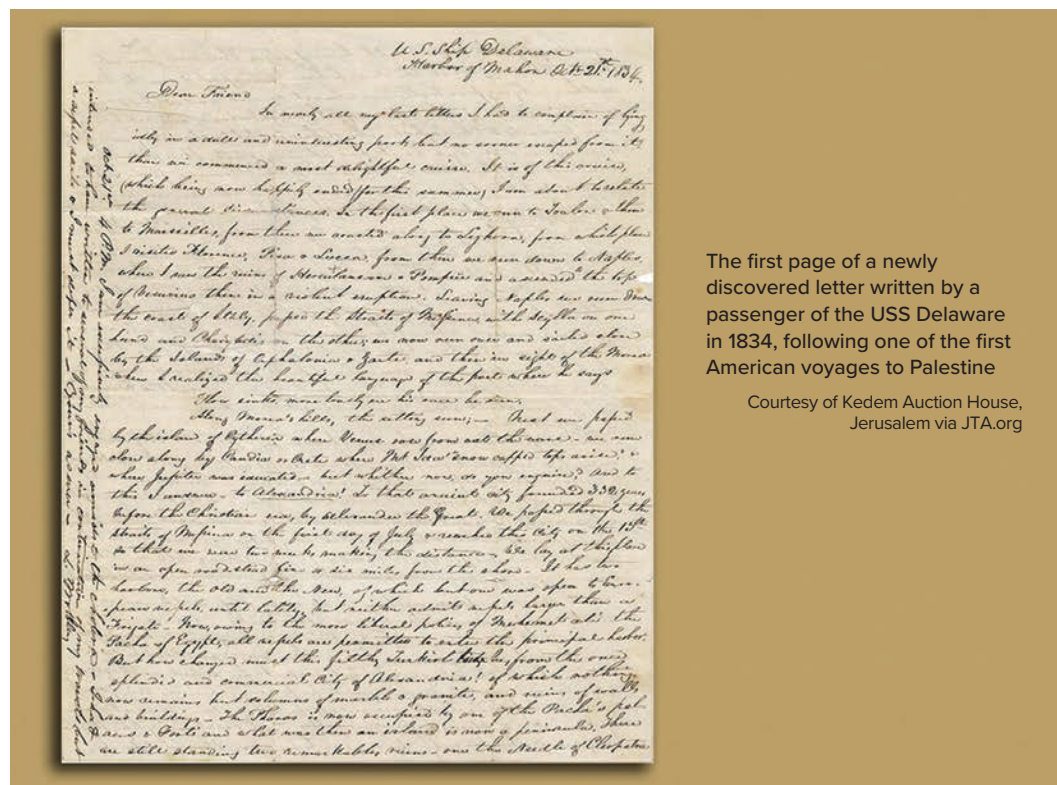 U.S. Ship Delaware
Harbor of Mahon Oct. 21st 1834.
Dear Friend
In nearly all my last letters I had to complain of lying
idly in a dull and uninteresting port, but no sooner escaped from it
than we commenced a most delightful cruise. It is of this cruise,
(which being now happily ended for the summer,) I am about to relate
the general circumstances. In the first place we run to Toulon & then
to Marseilles, from there we coasted along to Leghorn, from which place
I visited Florence, Pisa & Lucca, from there we run down to Naples,
where I saw the ruins of Herculaneum & Pompeii and ascended the top
of Vesuvius then in a violent eruption. Leaving Naples we run down
the coast of Italy, passed the Straits of Messina, with Scylla on one
hand and Charybdis on the other, we now run over and sailed close
by the Islands of Cephalonia & Zante, and then in sight of the Morea
where I realized the beautiful language of the poet where he says
"Slow sinks, more lovely ere his race be run,
Along Morea's hills, the setting sun;— Next we passed
by the island of Cytherea where Venus rose from out the wave – we run
close along by Candia or Crete where Mt Ida's snow capped tops arise! &
where Jupiter was educated – but whither now, do you enquire? And to
this I answer – to Alexandria! To that ancient city founded 332 years
before the Christian era, by Alexander the Great. We passed through the
straits of Messina on the first day of July & reached this City on the 15th
so that we were two weeks making the distance – We lay at this place
in an open roadstead five or six miles from the shore – It has two
harbors, the old and the New, of which but one was open to Euro-
pean vessels, until lately, but neither admits vessels larger than a
Frigate – Now, owing to the more liberal policy of Mehemet Ali the
Pacha of Egypt, all vessels are permitted to enter the principal harbor.
But how changed must this filthy Turkish be, from the once
splendid and commercial City of Alexandria! of which nothing
now remains but columns of marble & granite, and ruins of walls
and buildings – The Pharos is now occupied by one of the Pacha's pal-
aces & Forts and what was then an island is now a peninsula, There
are still standing two remarkable ruins – one the Needle of Cleopatra
Oct 21st 4 P.M. I am
intended to have written to
& I must
The first page of a newly
discovered letter written by a
passenger of the USS Delaware
in 1834, following one of the first
American voyages to Palestine
Courtesy of Kedem Auction House,
Jerusalem via JTA.org